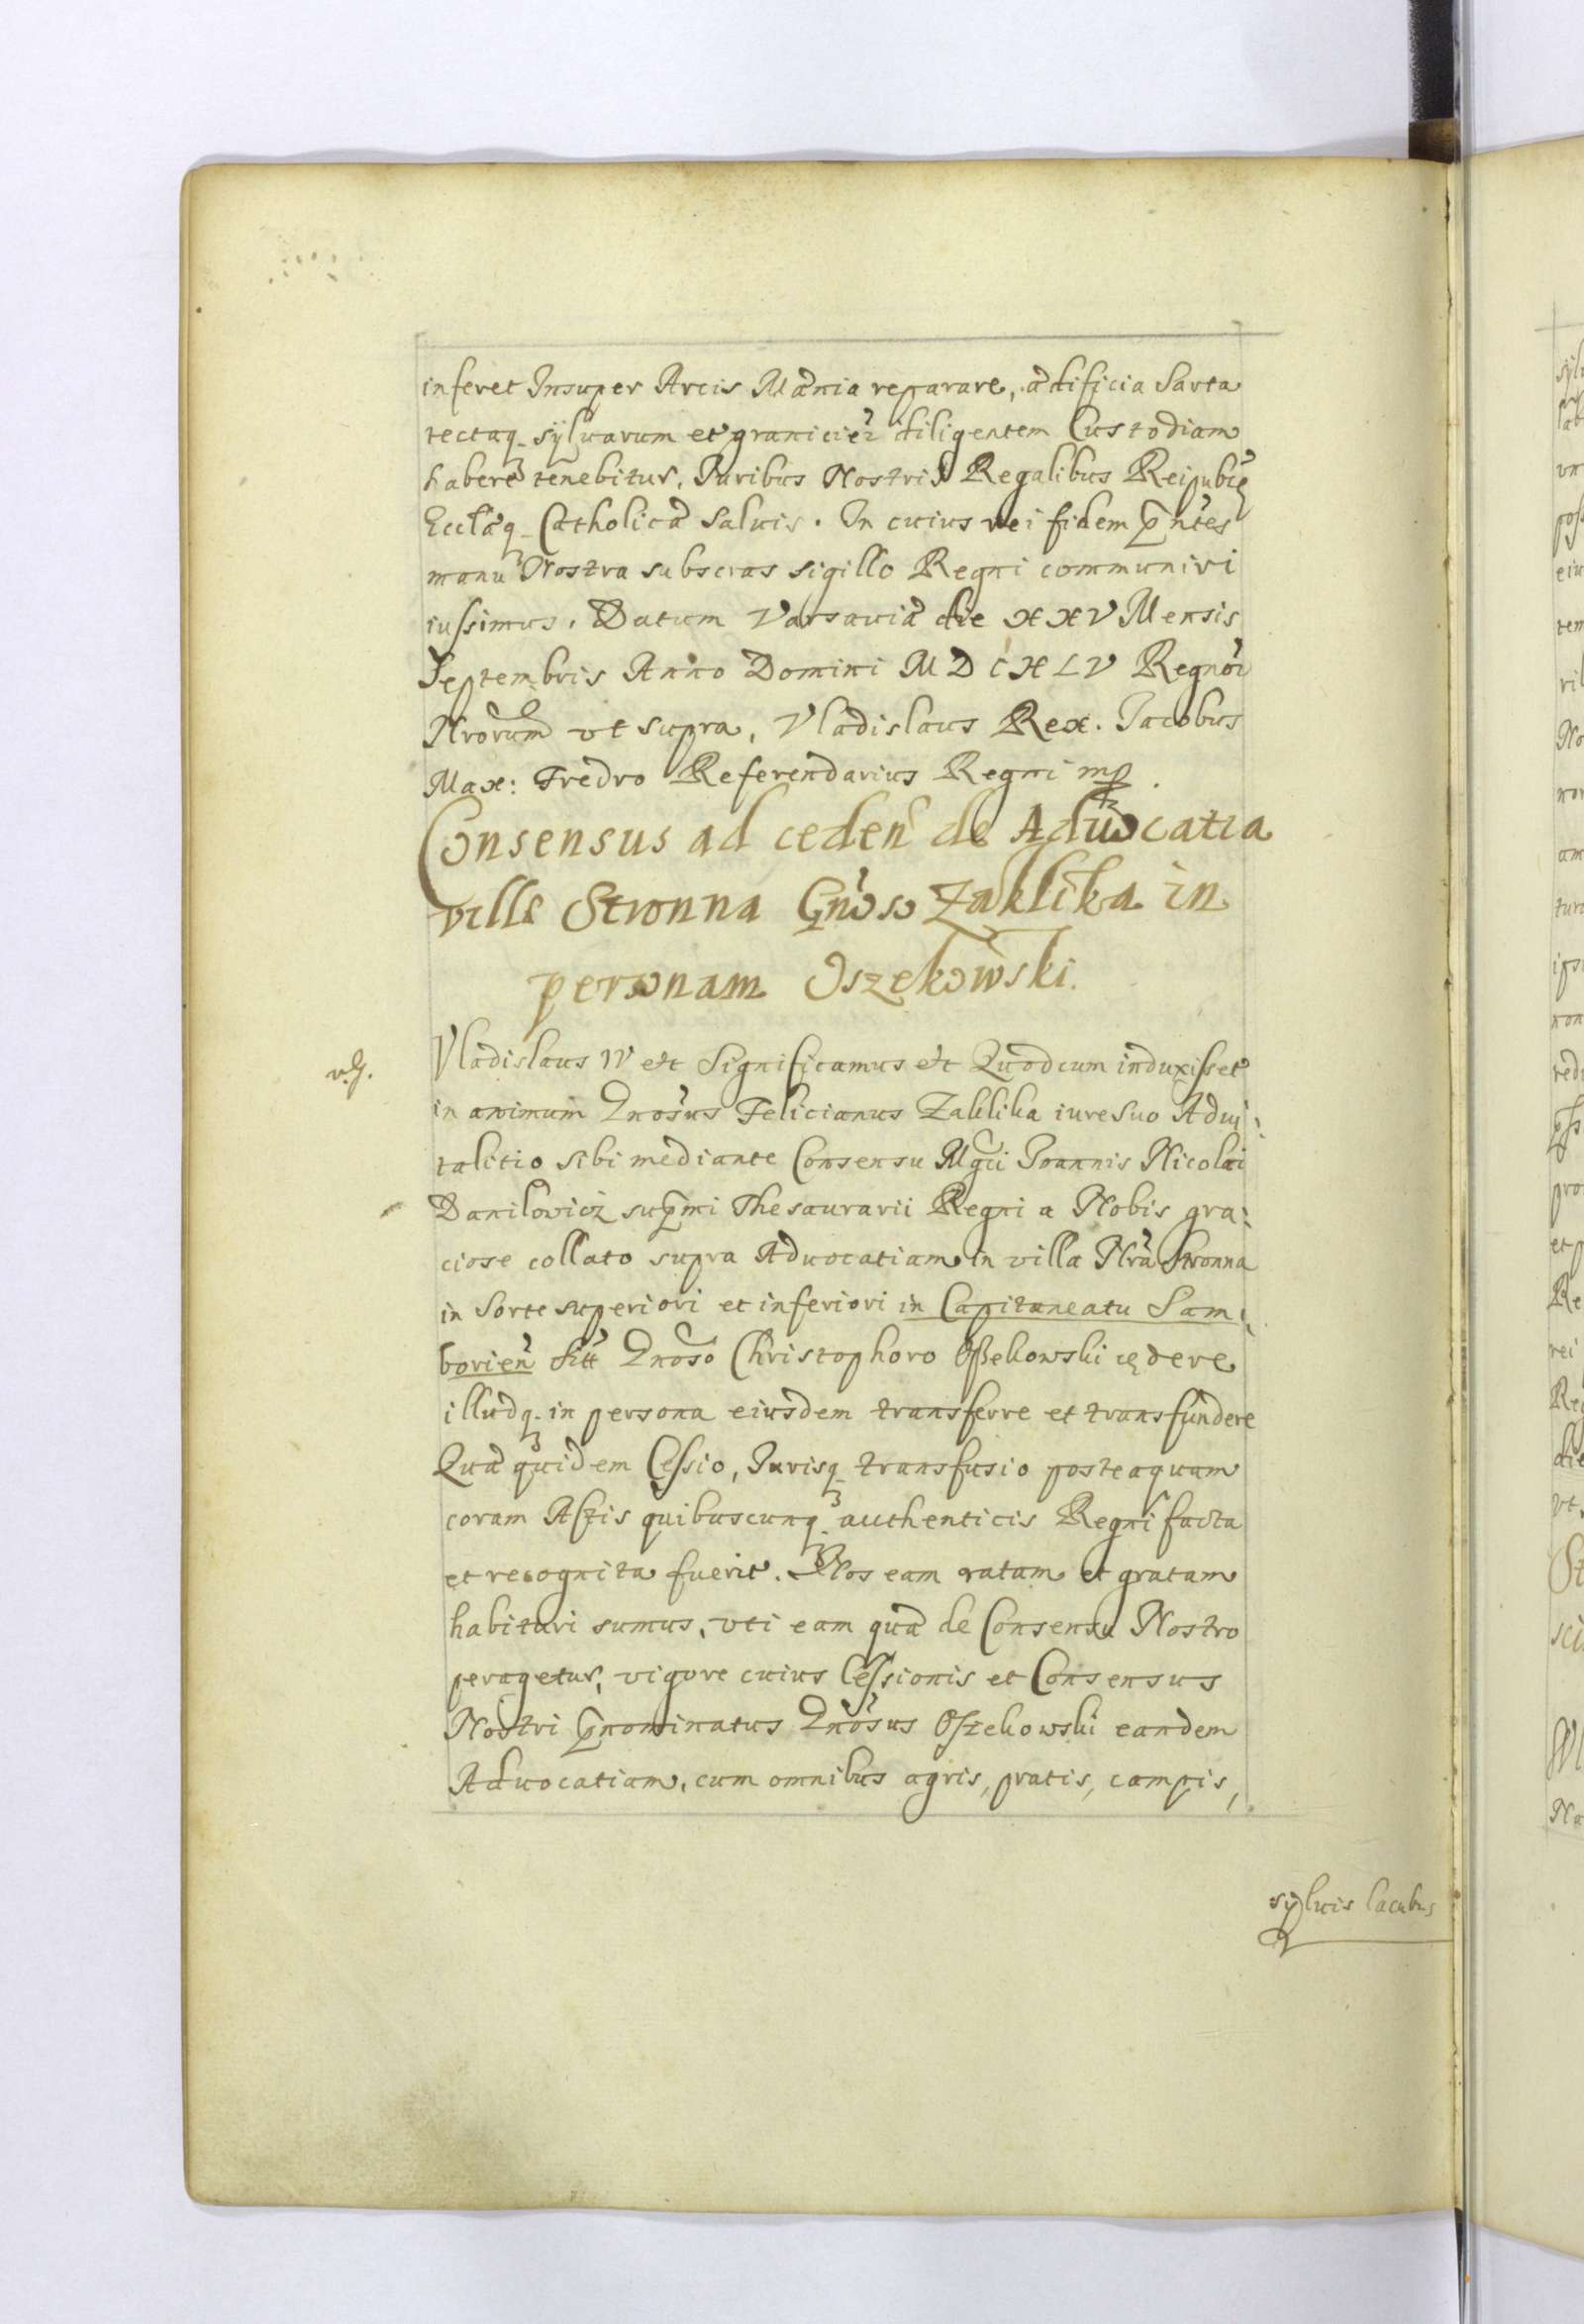 inferet Insuper Arcis Mænia reparare, ædificia Sarta
tectaq₃ sÿluarum et granicieɾ̃ diligentem Custodiam
habere tenebitur, Iuribus Nostris Regalibus Reipubcę
Ecclæq₃ Catholicæ Saluis. In cuius rei fidem p̃ntes
manu Nostra subscras sigillo Regni communiri
iussimus, Datum Varsauiæ die XXV Mensis
Septembris Anno Domini MDCXLV Regnoɾ̃
Nrorum vt supra, Vladislaus Rex. Jacobus
Max: Fredro Referendarius Regni mp
Consensus ad ceden̄ de Aduocatia
villæ Stronna Gnoso Zaklika in
personam Oszekowski.
Vladislaus IV etc Significamus etc Quod cum induxisset
in animum Gnosus Felicianus Zaklika iure suo Adui:
talitio sibi mediante Consensu Mgci Joannis Nicolai
Danilowicz sup̃mi Thesaurarii Regni a Nobis gra:
ciose collato supra Aduocatiam in villa Nrã Stronna
in Sorte superiori et inferiori in Capitaneatu Sam:
borien̄ sitt̃ Gnoso Christophoro Oßekowski cędere
illudq₃ in persona eiusdem transferre et transfundere
Quæ quidem Cessio, Jurisq₃ transfusio posteaquam
coram Actis quibuscunq₃ authenticis Regni facta
et recognita fuerit. Nos eam ratam et gratam
habituri sumus, vti eam quæ de Consensu Nostro
peragetur, vigore cuius Cessionis et Consensus
Nostri p̃nominatus Gnosus Oszekowski eandem
Aduocatiam, cum omnibus agris, pratis, campis,
sÿluis lacubus